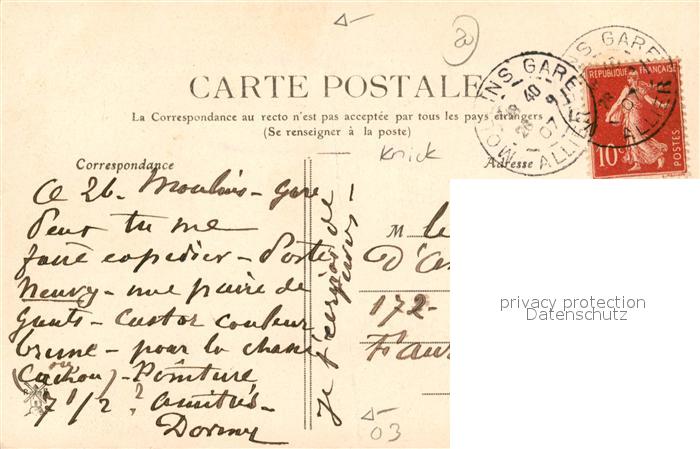 CARTE POSTALE
La Correspondance au recto n'est pas acceptée par tous les pays étrangers
(Se renseigner à la poste)
Correspondance
Adresse
Knick
20
MOULINS GARE
ALLIER
REPUBLIQUE FRANÇAISE
10c
POSTES
Ce 26. Moulins-Gare
Peux tu me
faire expedier - Porte
Neuvy - une paire de
gants - castor couleur
brune - pour la chasse
(ou cachou) - Pointure
7 1/2 ? amitiés -
Je t'écrirai de
M le
D'
172-
Fau
03
privacy protection
Datenschutz